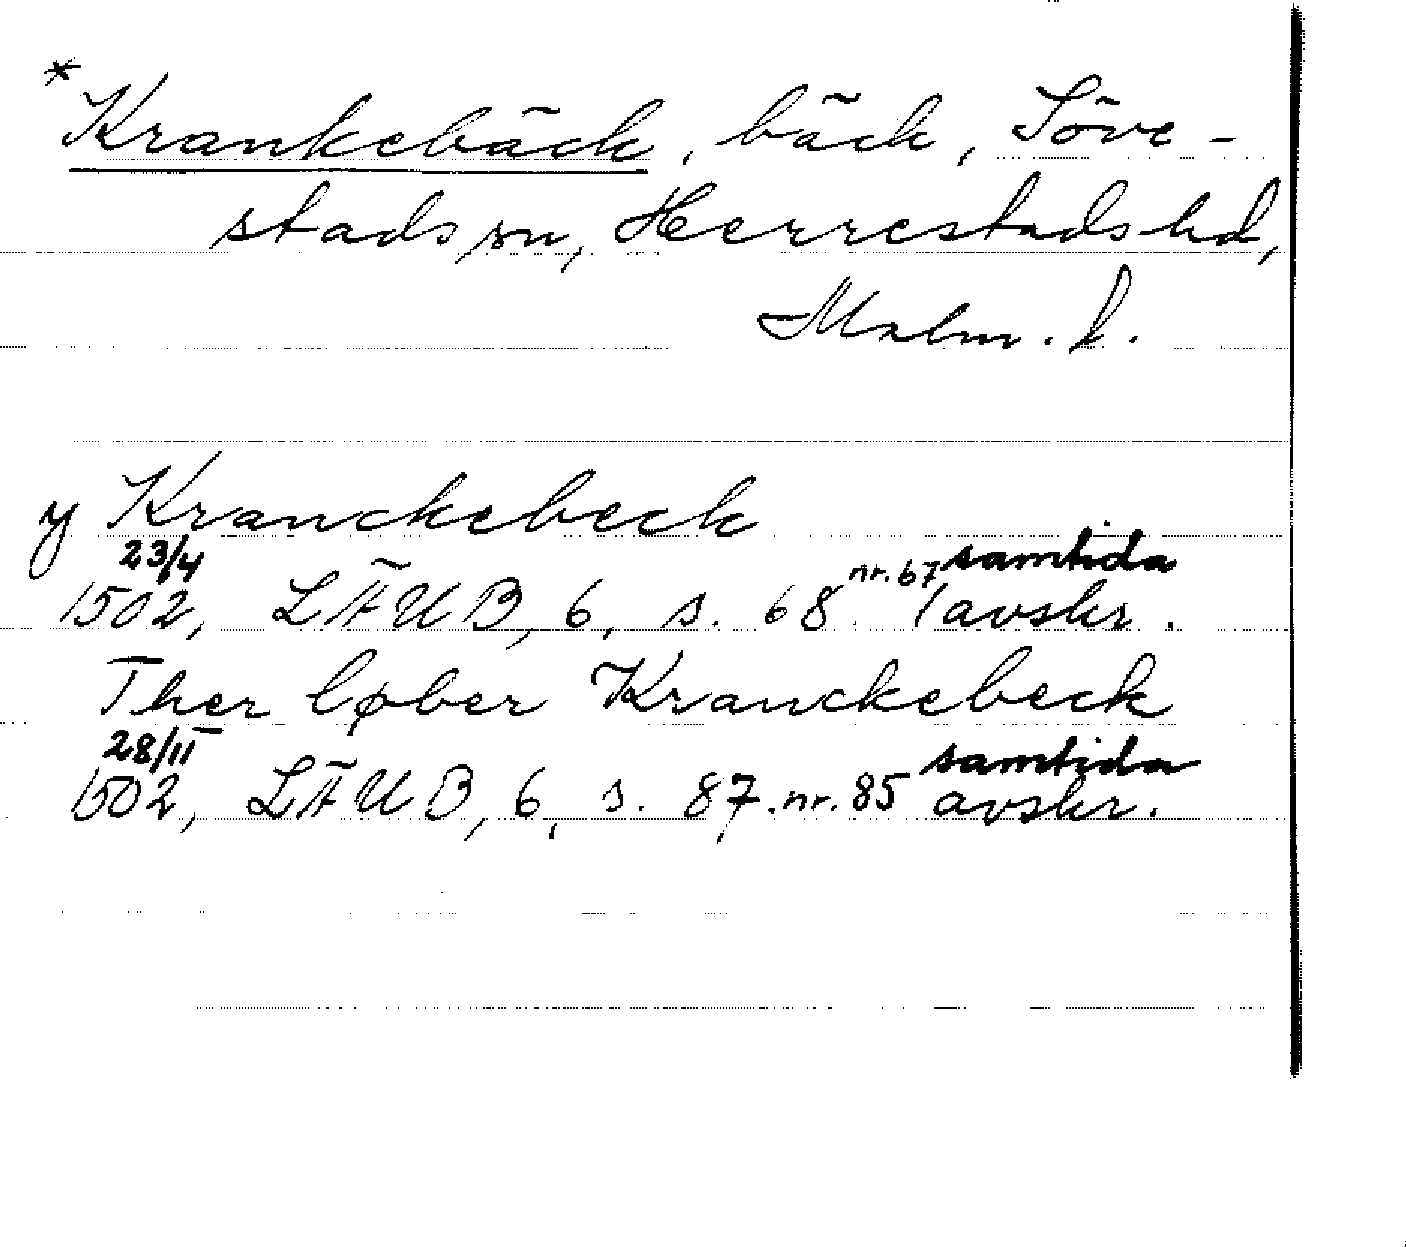 *Krankebäck, bäck, Söve-
stads sn, Herrestads hd,
Malm. l.
y Kranckebeck
23/4 1502, LÄUB, 6, s. 68 nr. 67 samtida avskr.
Ther løber Kranckebeck
28/11 1502, LÄUB, 6, s. 87. nr. 85 samtida avskr.